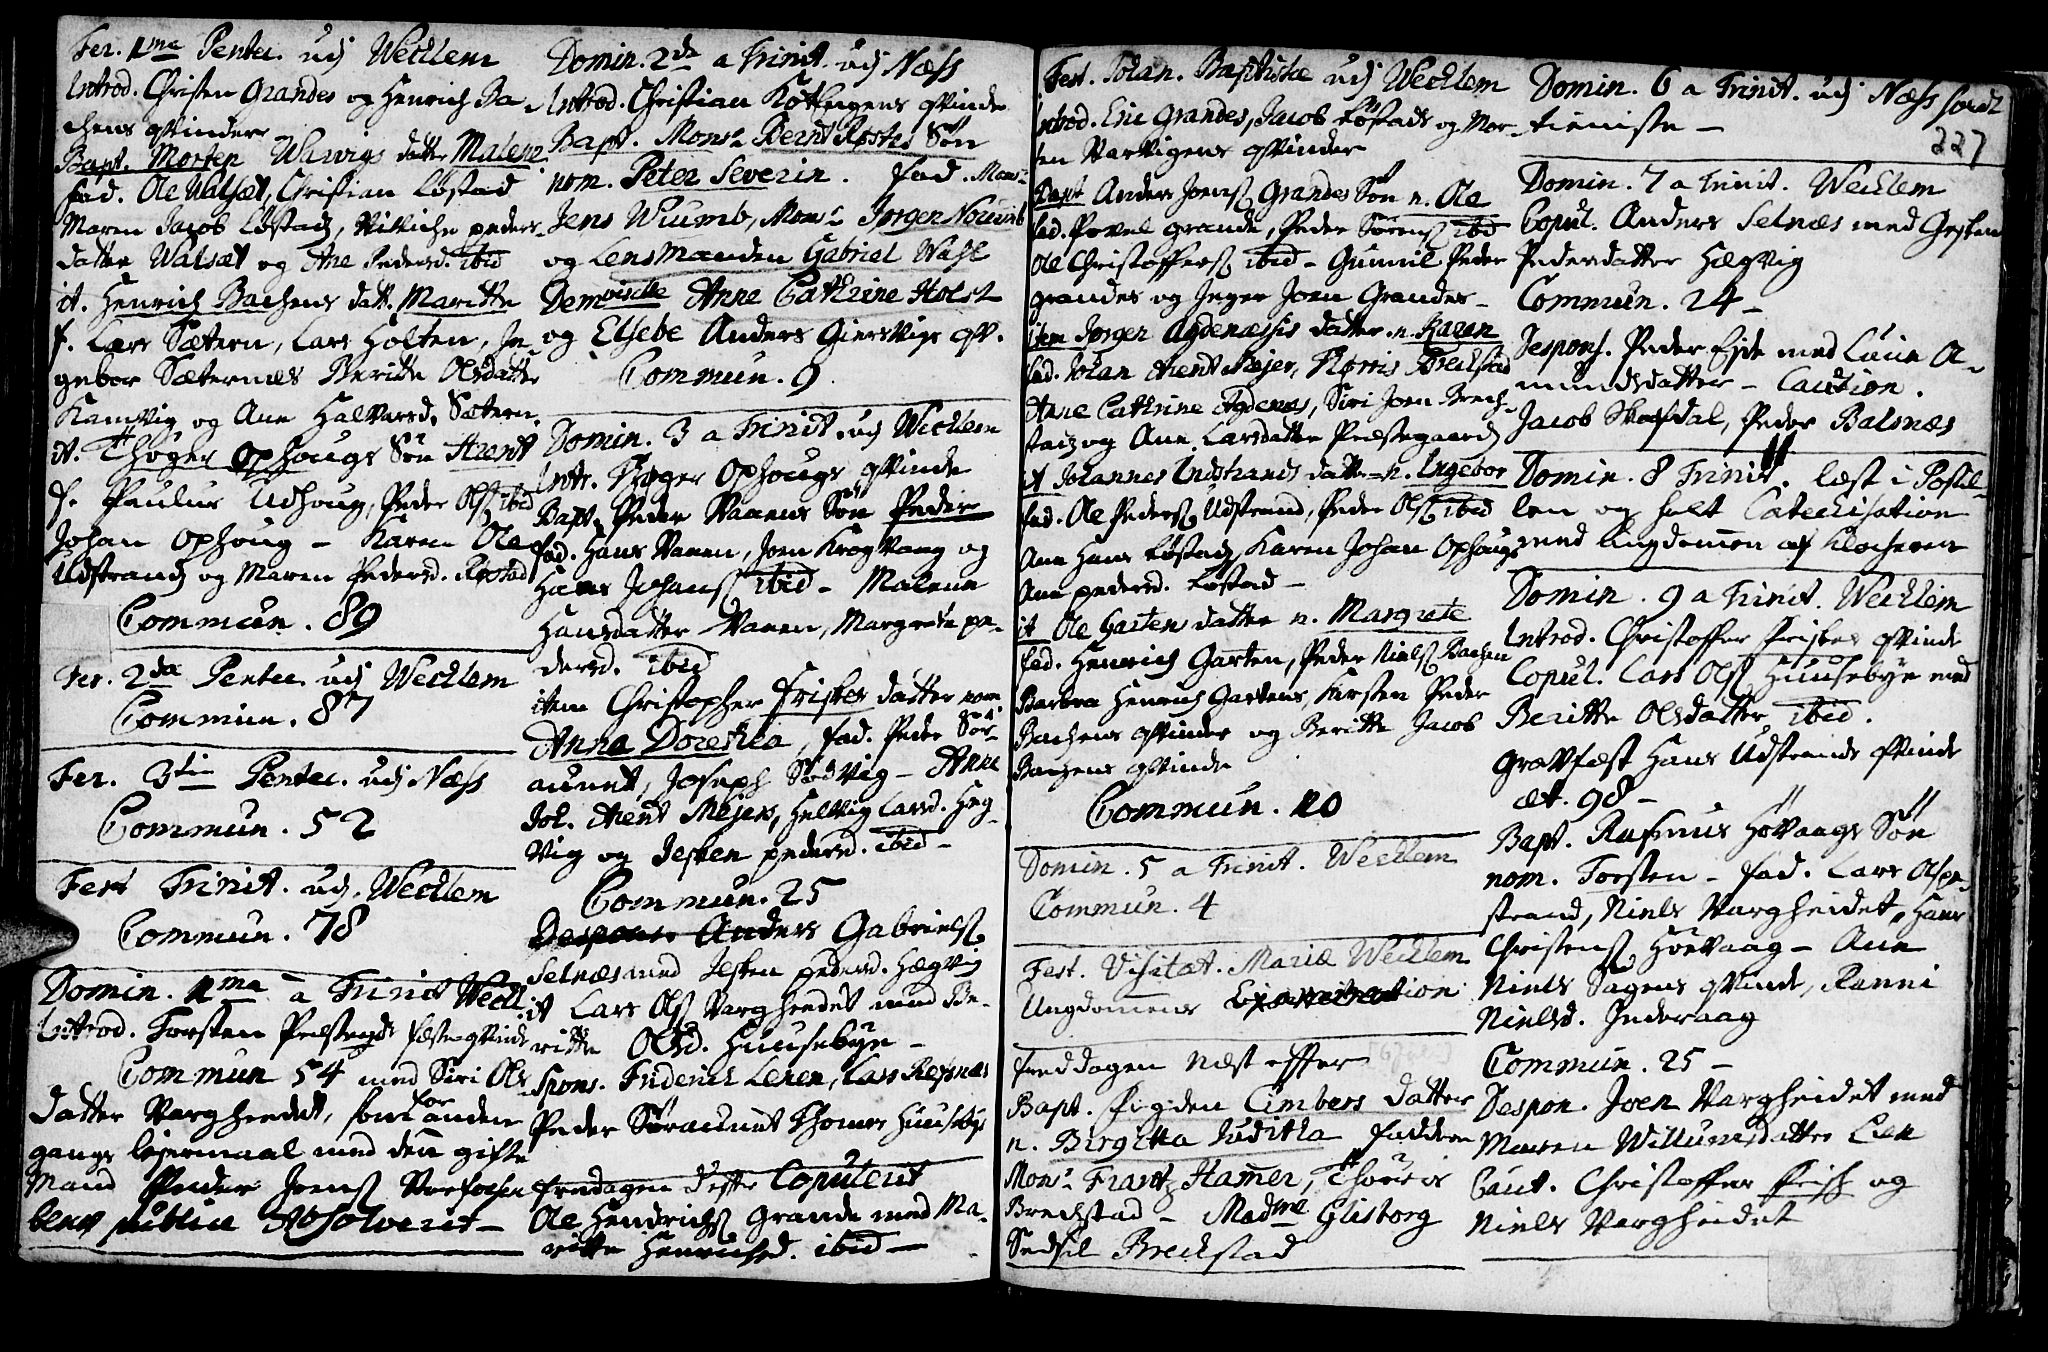 Fer. 1me Pentec. udj Wechlem
Introd. Christen Grandes og Henrich Ba-
chens qvinder
Bapt. Morten Warvigs datt. Malene
fad. Ole Walsæt, Christian Løstad
Maren Jacob Løstadz, Villiche peders-
datter Walsæt og Ane Pedersd. ibid
it. Henrich Bachens datt. Maritte
f. Lars Sætern, Lars Holten, In-
gebor Sæternes Beritte Olsdatter
Kamvig og Ane Halvarsd. Sætern.
it. Thøger Ophougs Søn Arent
f. Paulus Udhoug, Peder Ols. ibid
Johan Ophoug - Karen Ole
Udstrandz og Maren Pedersd. Røstad
Commun. 89
Fer. 2da Pentec. udj Wechlem
Commun. 87
Fer. 3tia Pentec. udj Næss
Commun. 52
Fest Trinit. udj. Wechlem
Commun. 78
Domin. 1ma a Trinit Wechl.
Introd. Torsten Præstegrds fæsteqvinde
Commun 54 med Siri Ols
datter Vargheedet, som for anden
gangs lejermaal med den gifte
Mand Peder Jens
blev publice Absolverit -
Domin. 2da a Trinit. udj Næss
Introd. Christian Køthagens qvinde
Bapt. Monsr Bernt Røstes Søn
nom. Peter Severin. fad. Monsr
Jens Wiumb, Monsr Jørgen Nowinb
og Lensmanden Gabriel Wahl
Demoiselle Anne Cathrine Holst
og Elsebe Anders Giersvigs qv.
Commun. 9
Domin. 3 a Trinit. udj Wechlem
Intr. Trøger Ophougs qvinde
Bapt. Peder Vanens Søn Peder
fad. Hans Vanen, Joen Krogvaag og
Hans Johans. ibid - Malene
Hansdatter Vanen, Margrete pe-
dersd. ibid
item Christopher Frisker datter nom
Anna Dorethea, fad. Peder Sør-
aunet, Joseph Sødvig - Anne
Joh. Arent Mejers, Helvig Larsd. Heg-
vig og Jesken pedersd. ibid -
Commun. 25
Despons. Anders Gabriels.
Selnæs med Jesken pedersd. Hægvig
it Lars Ols. Vargheedet med Be-
ritte Olsd. Huusebye -
Spons. Friderich Leren, Lars Reshnæs
Peder Søraunet Thomes Huuseby
fredagen dester Copulerit
Ole Hendrichs. Grande med Ma-
ritte Henrichsd. ibid -
Fest. Johan. Baptistæ udj Wechlem
Introd. Eric Grandes, Jacob Løstads og Mor-
ten Varvigens qvinder
Bapt Anders Joens. Grandes Søn n. Ole
fad. Povel grande, Peder Sørens. ibid
Ole Christoffers. ibid - Gunnil Peder
grandes og Inger Joen Grandes -
item Jørgen Agdenæssis datter n. Karen
fad. Johan Arent Mejer, Norris Brechstad
Anne Cathrine Agdenes, Siri Joen Brech-
stadz og Ane Larsdatter Præstegaard
it Johannes Indstrands datter n. Ingebor
fad. Ole Peders. Udstrand, Peder Ols. ibid
Ane Hans Løstadz, Karen Johan Ophougs
Ane pedersd. Løstad -
it Ole Garten datter n. Margrete
fad. Henrich Garten, Peder Niels. Bachen
Barbra Henrich Gartens, Kirsten Peder
Bachens qvinder og Beritte Jacob
Bachens qvinde
Commun. 20
Domin. 5 a Trinit. Wechlem
Commun. 4
Fest. Visitat. Mariæ Wechlem
Ungdomens Examination
fredagen næst effter
Bapt. Cimbers datter
n. Birgitta Juditha faddere
Monsr Frantz Hamer, Thoris
Brechstad - Madme Glisborg
Sedsil Brechstad
Domin. 6 a Trinit. udj Næss
tieniste -
227
Domin. 7 a Trinit. Wechlem
Copul. Anders Selnæs med Gesken
Pedersdatter Hægvig
Commun. 24 -
Despons. Peder Eide med Lucie A-
mundsdatter - Caution.
Jacob Skafdal, Peder Balsnæs
Domin. 8 Trinit. læst i Postil-
len og holt Catechisation
med Ungdomen af Klocheren
Domin. 9 a Trinit. Wechlem
Introd. Christoffer Friskes qvinde
Copul. Lars Ols. Huusebye med
Beritte Olsdatter ibid.
gravfæst Hans Udstrands qvinde
æt. 98 -
Bapt. Rasmus Høvaags Søn
nom. Torsten - fad. Lars Ofte-
strand, Niels Vargheidet, Hans
Christens. Høevaag - Ane
Niels Sagens qvinde, Ranni
Nielsd. Inderaag
Commun. 25 -
Despon. Joen Vargheidet med
Maren Willumsdatter Lien
Caut. Christoffer Frisk og
Niels Vargheidet